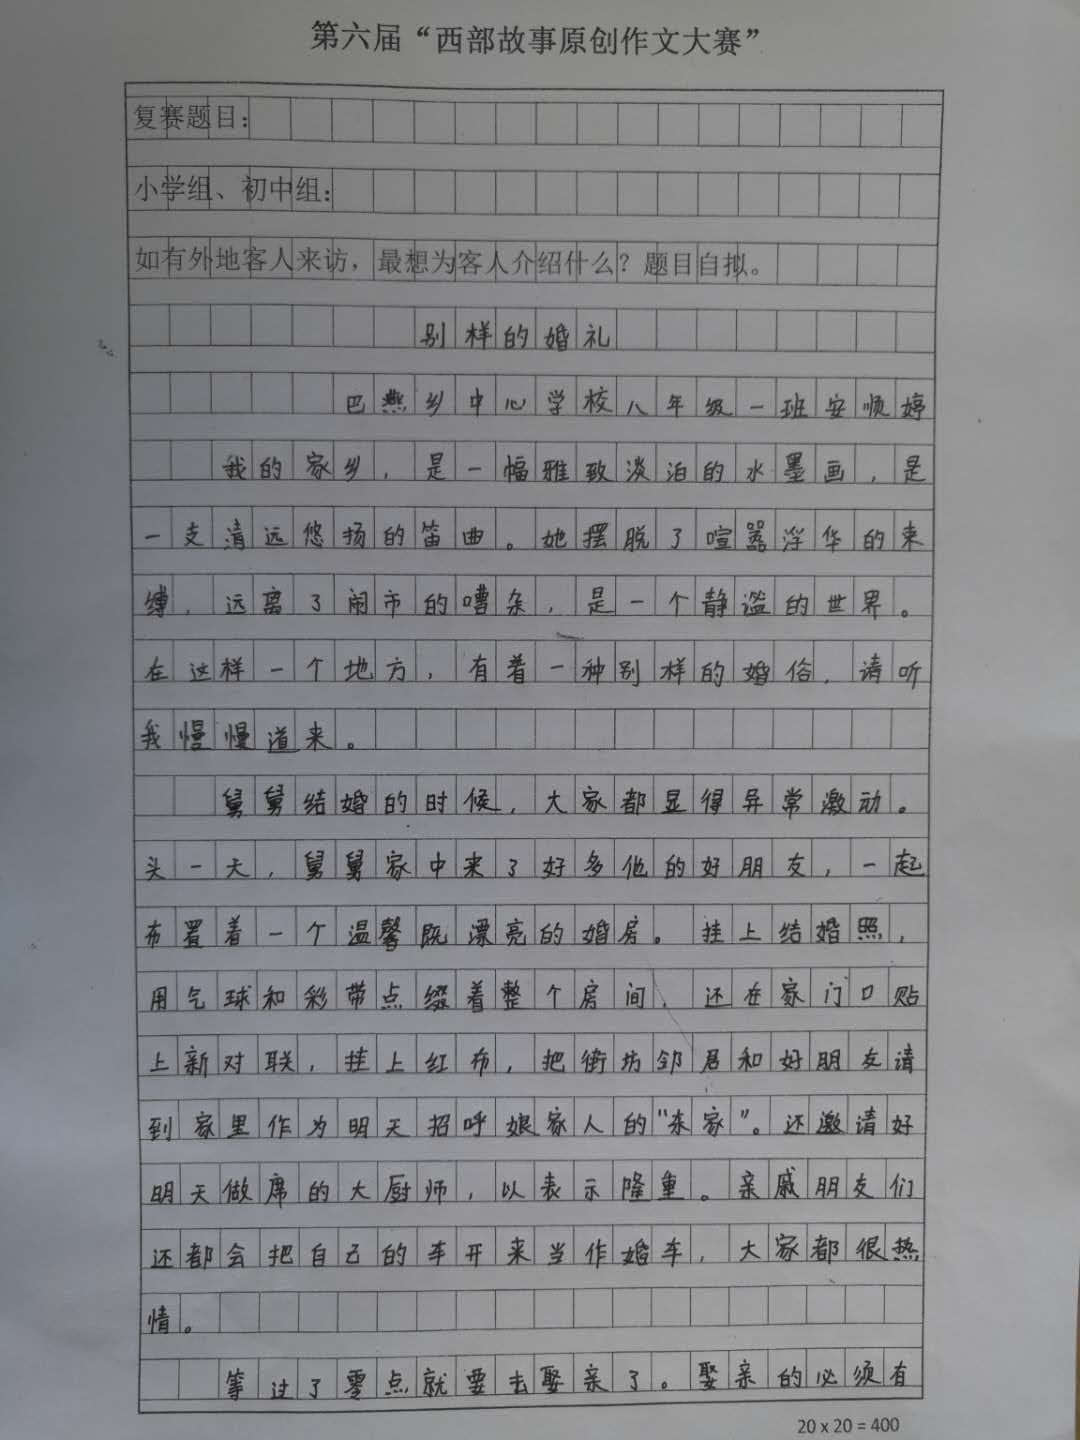 第六届“西部故事原创作文大赛”
复赛题目：
小学组、初中组：
如有外地客人来访，最想为客人介绍什么？题目自拟。
别样的婚礼
巴燕乡中心学校八年级一班安顺婷
我的家乡，是一幅雅致淡泊的水墨画，是
一支清远悠扬的笛曲。她摆脱了喧嚣浮华的束
缚，远离了闹市的嘈杂，是一个静谧的世界。
在这样一个地方，有着一种别样的婚俗，请听
我慢慢道来。
舅舅结婚的时候，大家都显得异常激动。
头一天，舅舅家中来了好多他的好朋友，一起
布置着一个温馨既漂亮的婚房。挂上结婚照，
用气球和彩带点缀着整个房间，还在家门口贴
上新对联，挂上红布，把街坊邻居和好朋友请
到家里作为明天招呼娘家人的“东家”。还邀请好
明天做席的大厨师，以表示隆重。亲戚朋友们
还都会把自己的车开来当作婚车，大家都很热
情。
等过了零点就要去娶亲了。娶亲的必须有
20 x 20 = 400